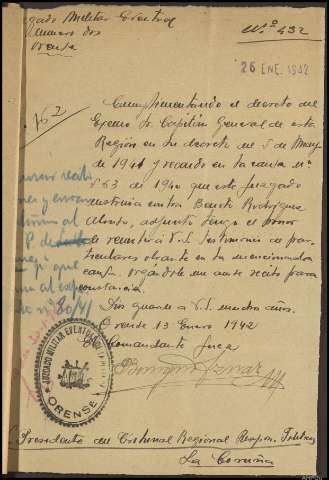 Juzgado Militar Eventual
Numero dos
Orense
Nº 432
26 ENE. 1942
762
Cumplimentando el decreto del
Excmo Sr. Capitán General de esta
Región en su decreto de 5 de Mayo
de 1941 y recaido en la causa nº
863 de 1940 que este juzgado
instruia contra Benito Rodríguez
Alonso, adjunto tengo el honor
de remitir a V.S. testimonio de par-
ticulares obrante en la mencionada
causa. rogandole me acuse recibo para
constancia.
Dios guarde a V.S. muchos años.
Orense 13 Enero 1942
El Comandante Juez
nº 80/41
JUZGADO MILITAR EVENTUAL
ORENSE
Presidente del Tribunal Regional Respon. Politicas
La Coruña